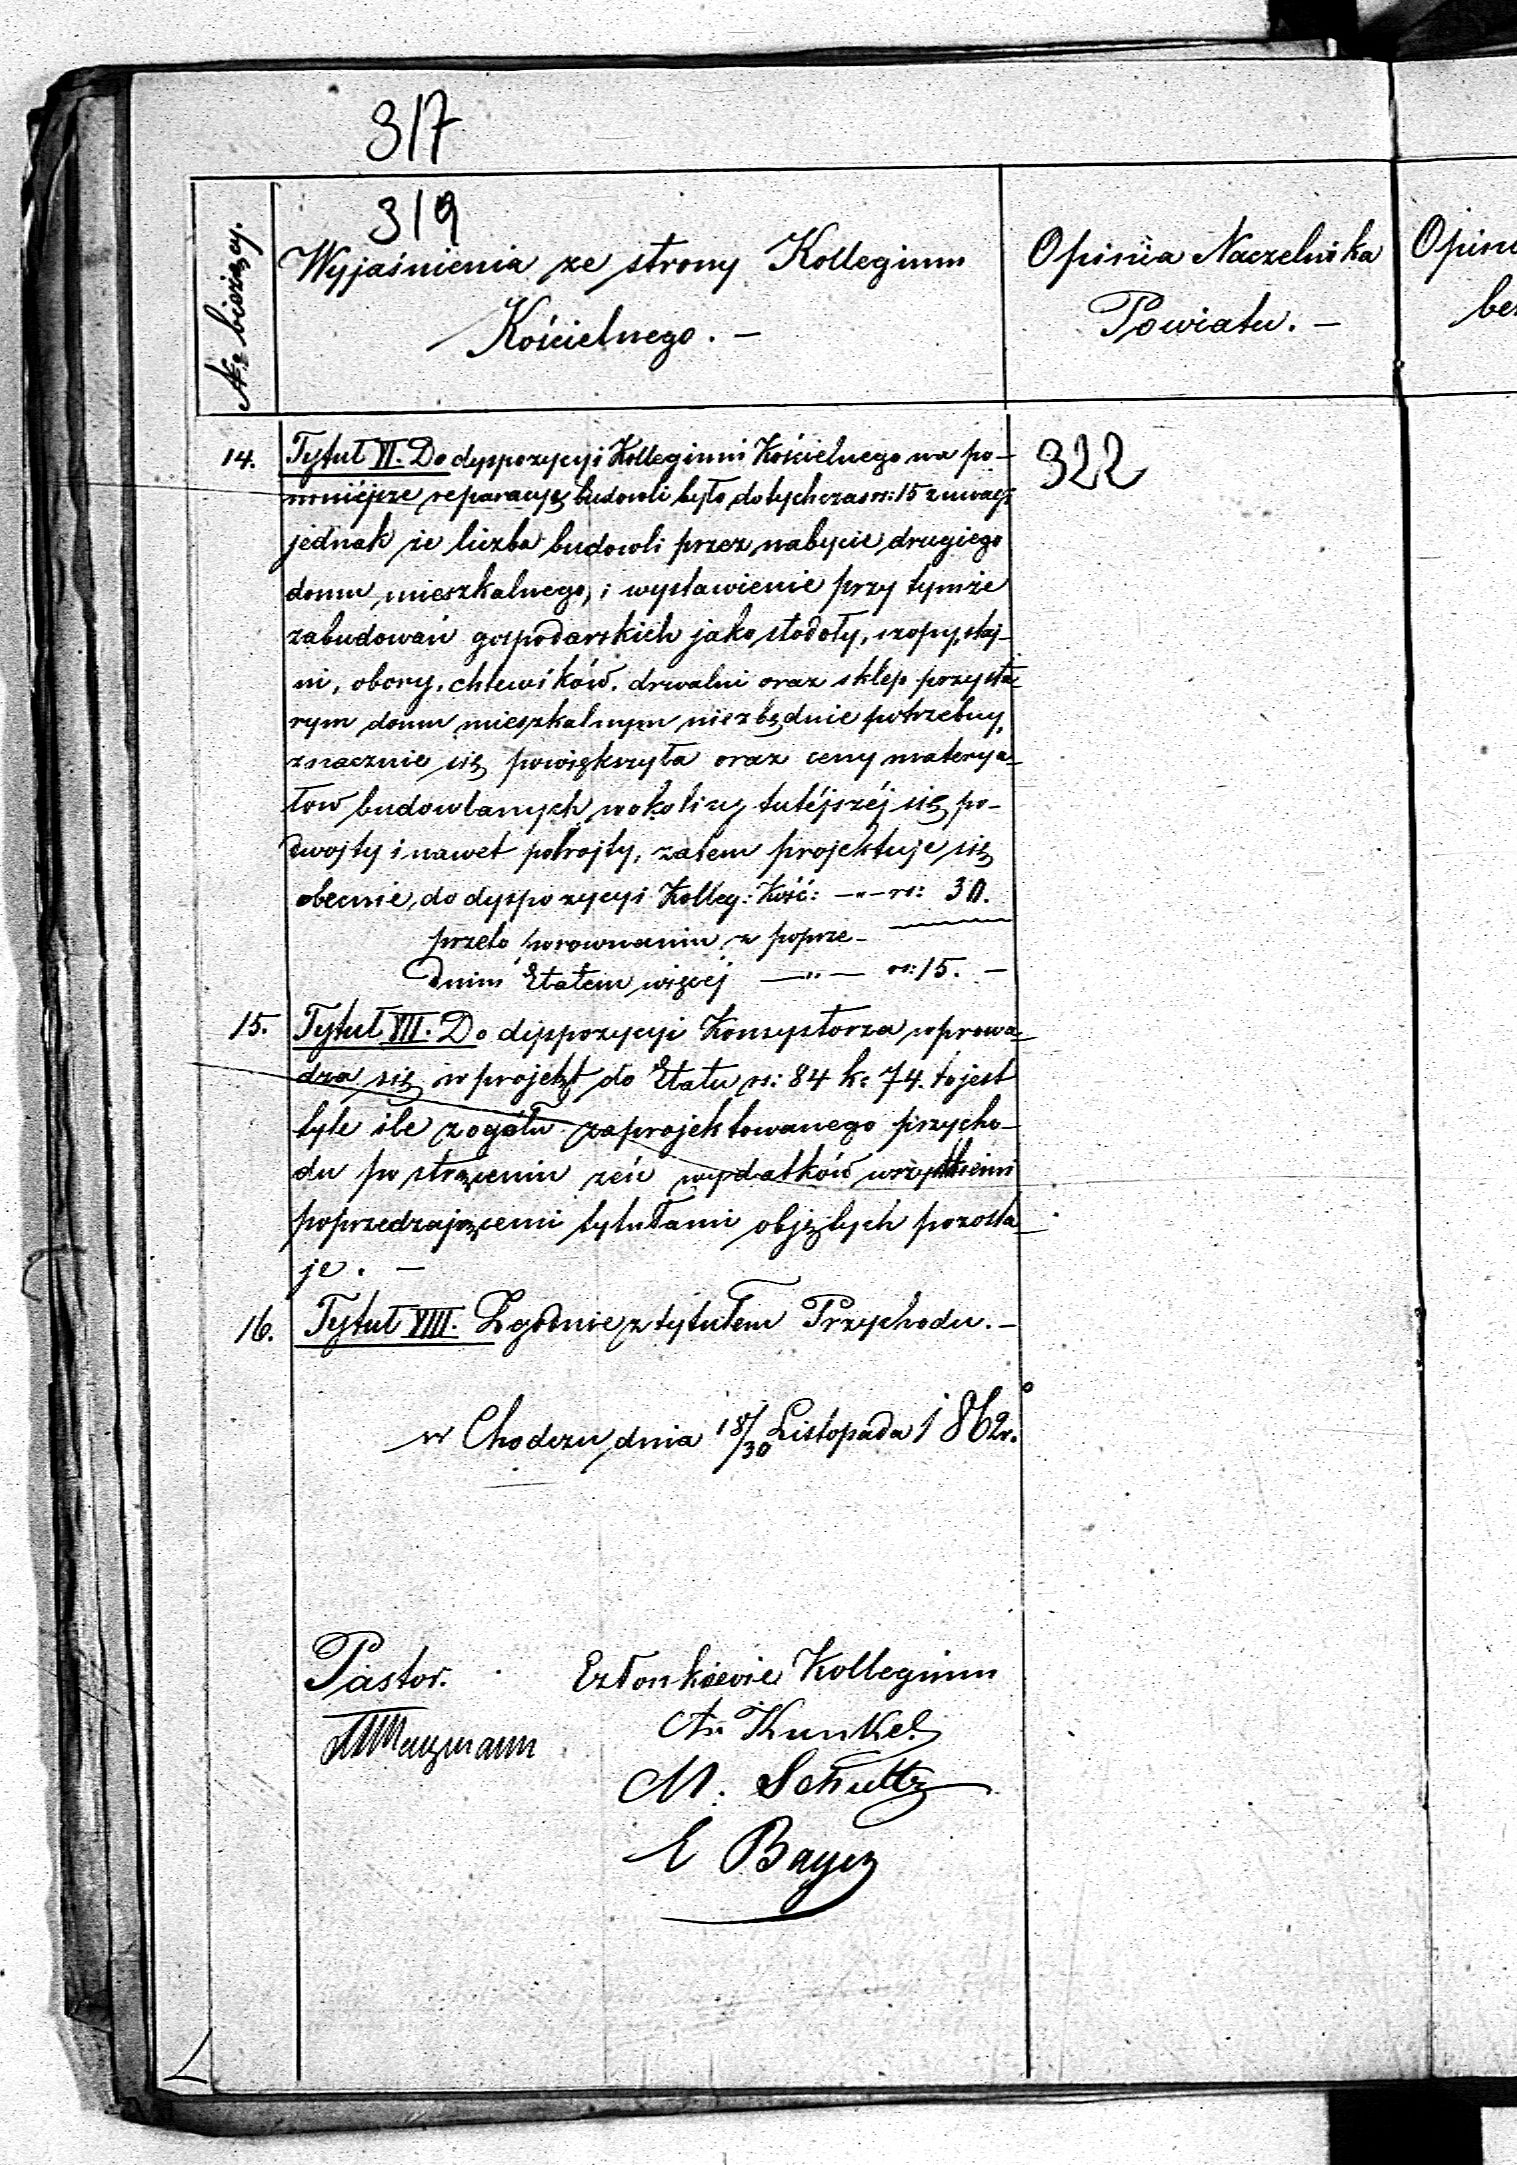 317
319
No bieżący.
Wyjaśnienia ze strony Kollegium
Kościelnego. —
Opinia Naczelnika
Powiatu. —
Opini
be
14.
Tytuł VI. Do dyspozycyi Kollegium Kościelnego na po-
mniejsze reparacye budowli było dotychczas rs: 15 z uwagi
jednak że liczba budowli przez nabycie drugiego
domu mieszkalnego, i wystawienie przy tymże
zabudowań gospodarskich jako stodoły, szopy, staj-
ni, obory, chlewików, drwalni oraz sklep przy sta-
rym domu mieszkalnym niezbędnie potrzebny,
znacznie się powiększyła oraz ceny materya-
łow budowlanych w okolicy tutéjszéj się po-
dwoiły i nawet potroiły, zatem projektuje się
obecnie, do dyspozycyi Kolleg: Kość: —„— rs: 30.
przeto porownaniu z poprze-
dnim Etatem więcéj —„— rs: 15. —
322
15.
Tytuł VII. Do dyspozycyi Konsystorza wprowa-
dza się w projekt do Etatu rs: 84 k: 74. to jest
tyle ile z ogółu zaprojektowanego przycho-
du po strąceniu zeń wydatków wszystkiemi
poprzedzającemi tytułami objętych pozosta-
je. —
16.
Tytuł VIII. Zgodnie z tytułem Przychodu. —
w Chodczu dnia 18/30 Listopada 1862r.
Pastor.
Członkowie Kollegium
Kunkel
M. Schultz
E Bayer